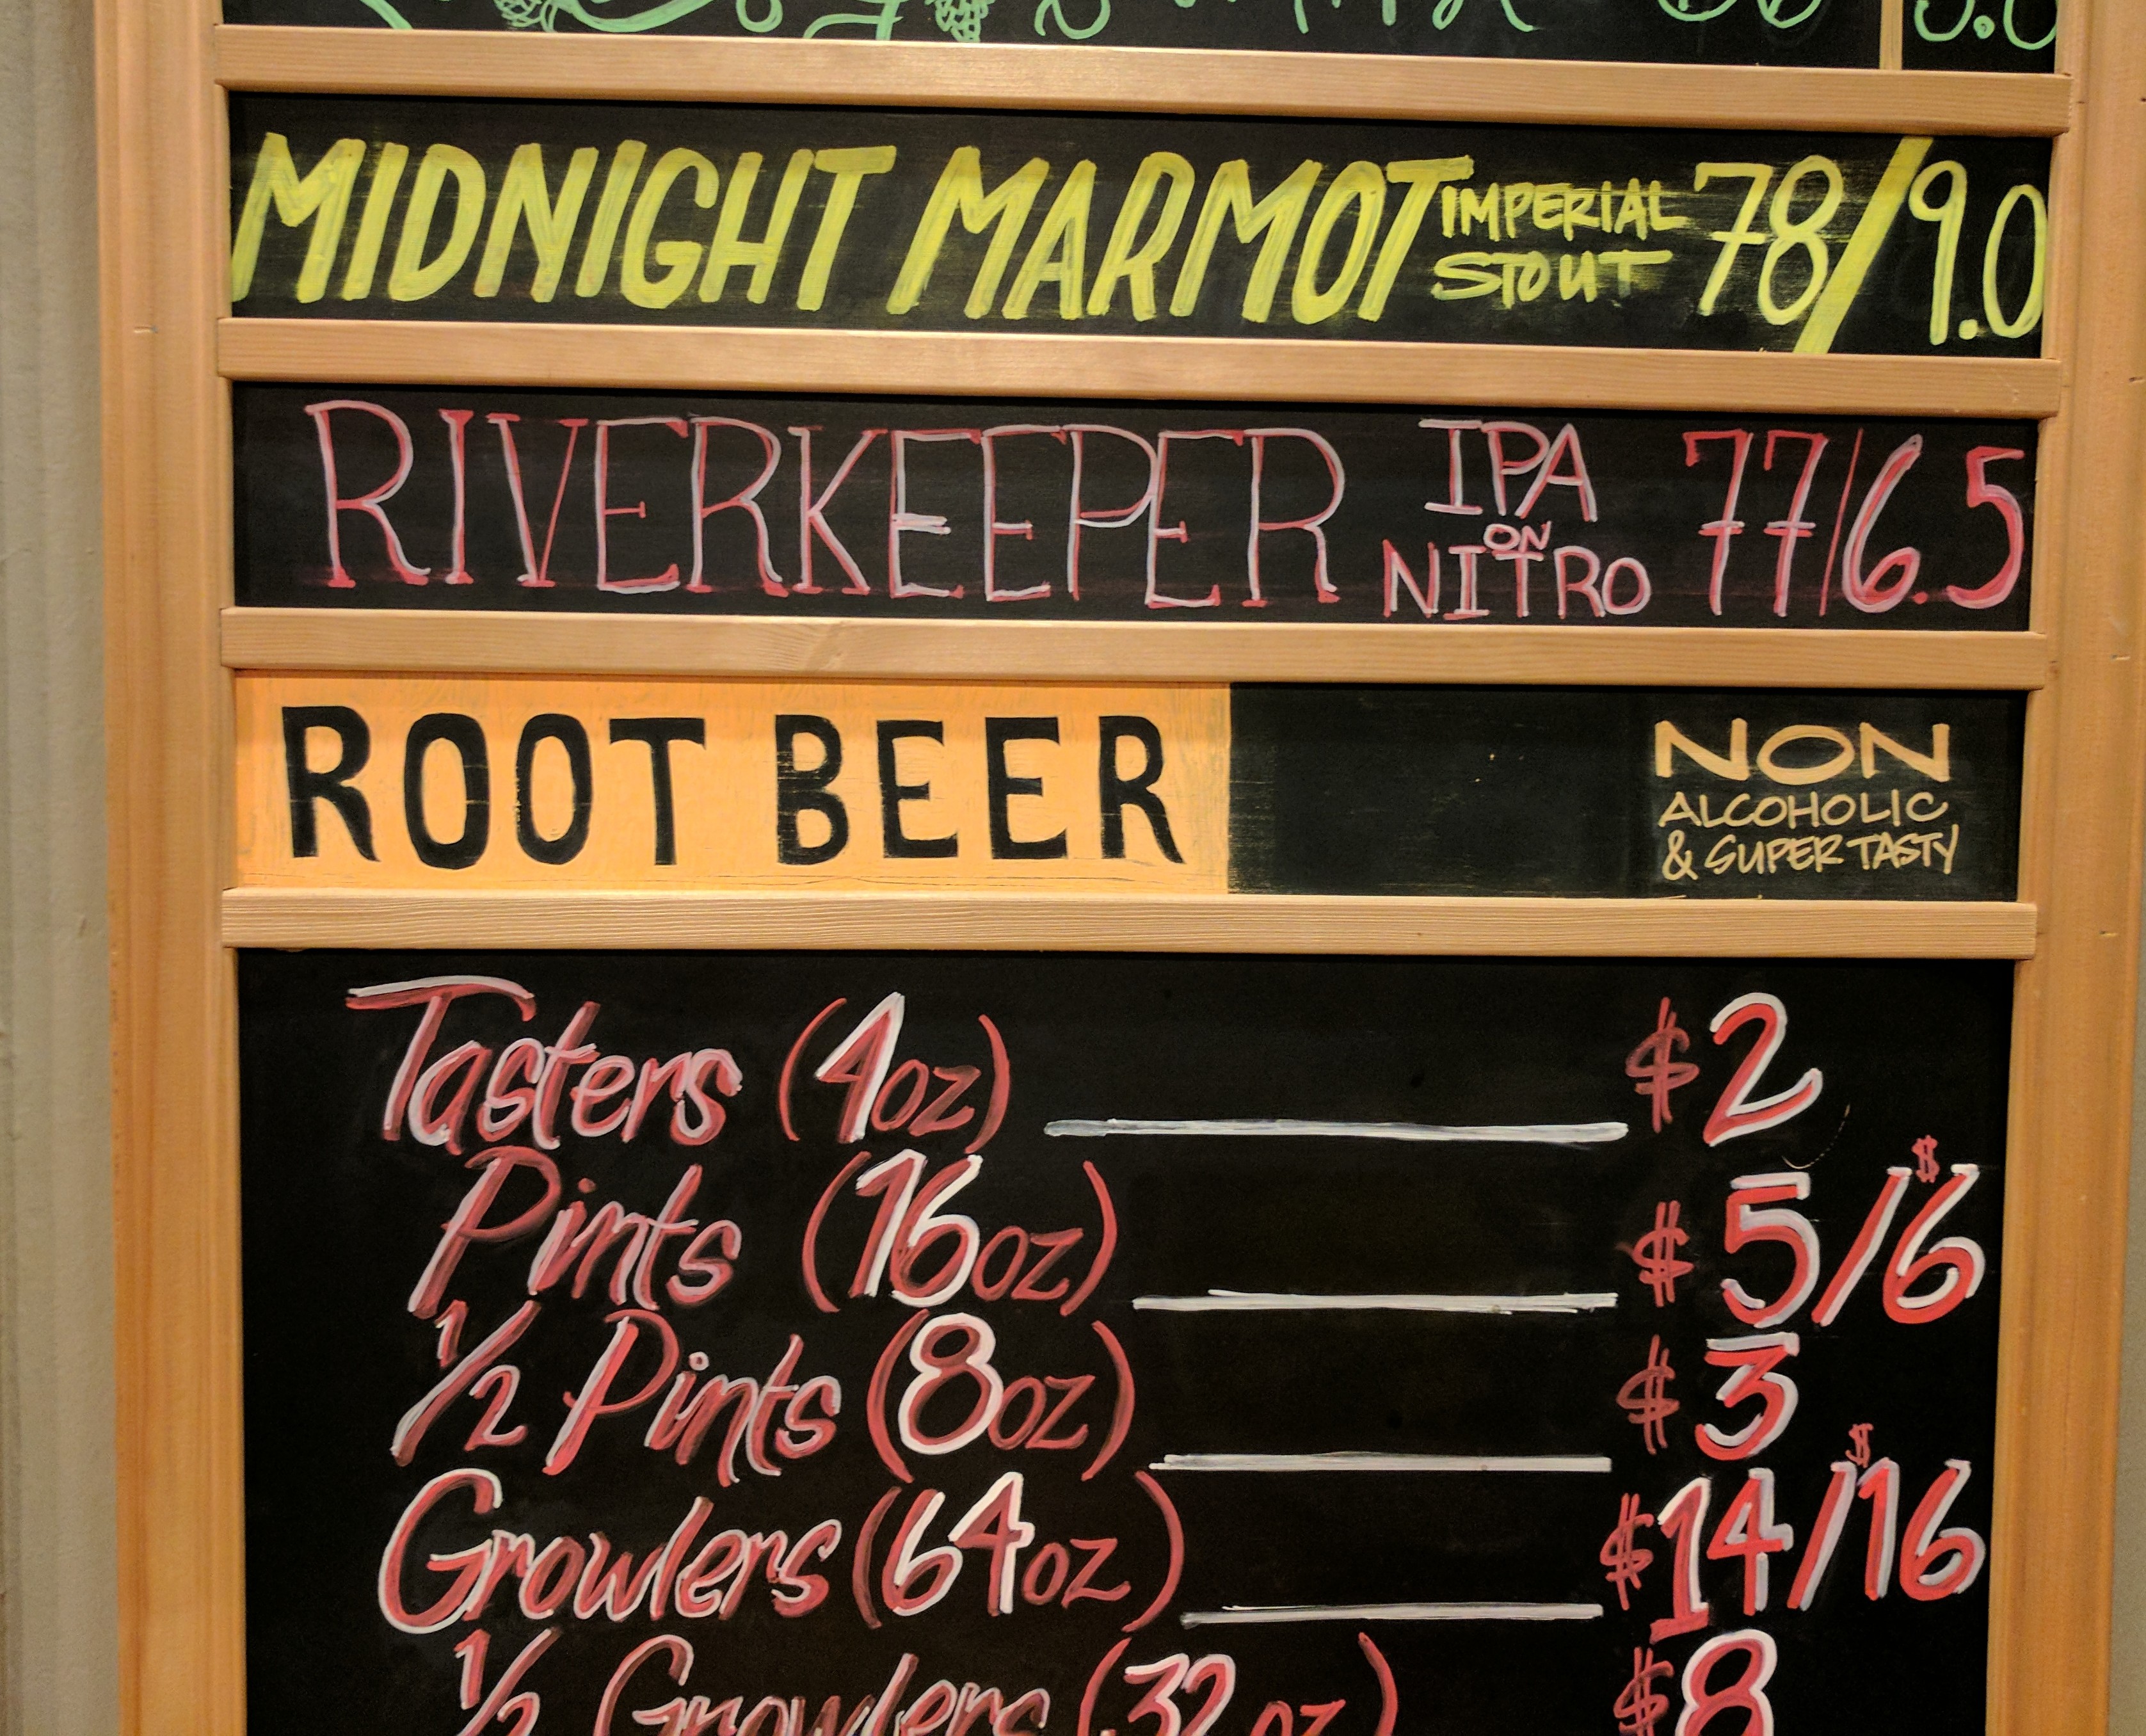 MIDNIGHT MARMOT IMPERIAL STOUT 78/9.0
RIVERKEEPER IPA ON NITRO 77/6.5
ROOT BEER NON ALCOHOLIC & SUPER TASTY
Tasters (4oz) $2
Pints (16oz) $5/$6
1/2 Pints (8oz) $3
Growlers (64oz) $14/$16
1/2 Growlers (32oz) $8